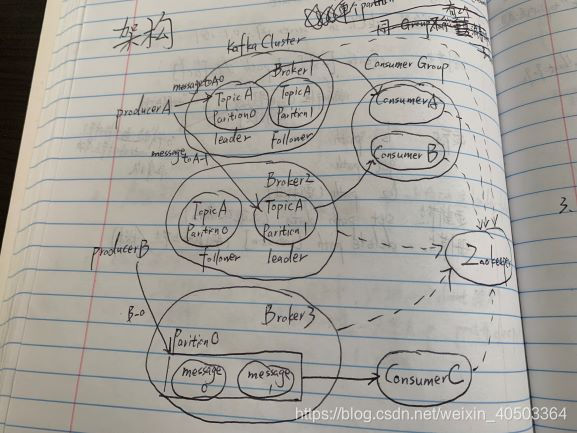 架构
Kafka Cluster
Consumer Group
Broker1
message to A0
producerA
TopicA
Parition0
leader
TopicA
Parition1
follower
ConsumerA
ConsumerB
message to A-1
Broker2
TopicA
Parition0
follower
TopicA
Parition1
leader
producerB
Zookeeper
3.
B-0
Broker3
Parition0
message
0
message
1
ConsumerC
https://blog.csdn.net/weixin_40503364